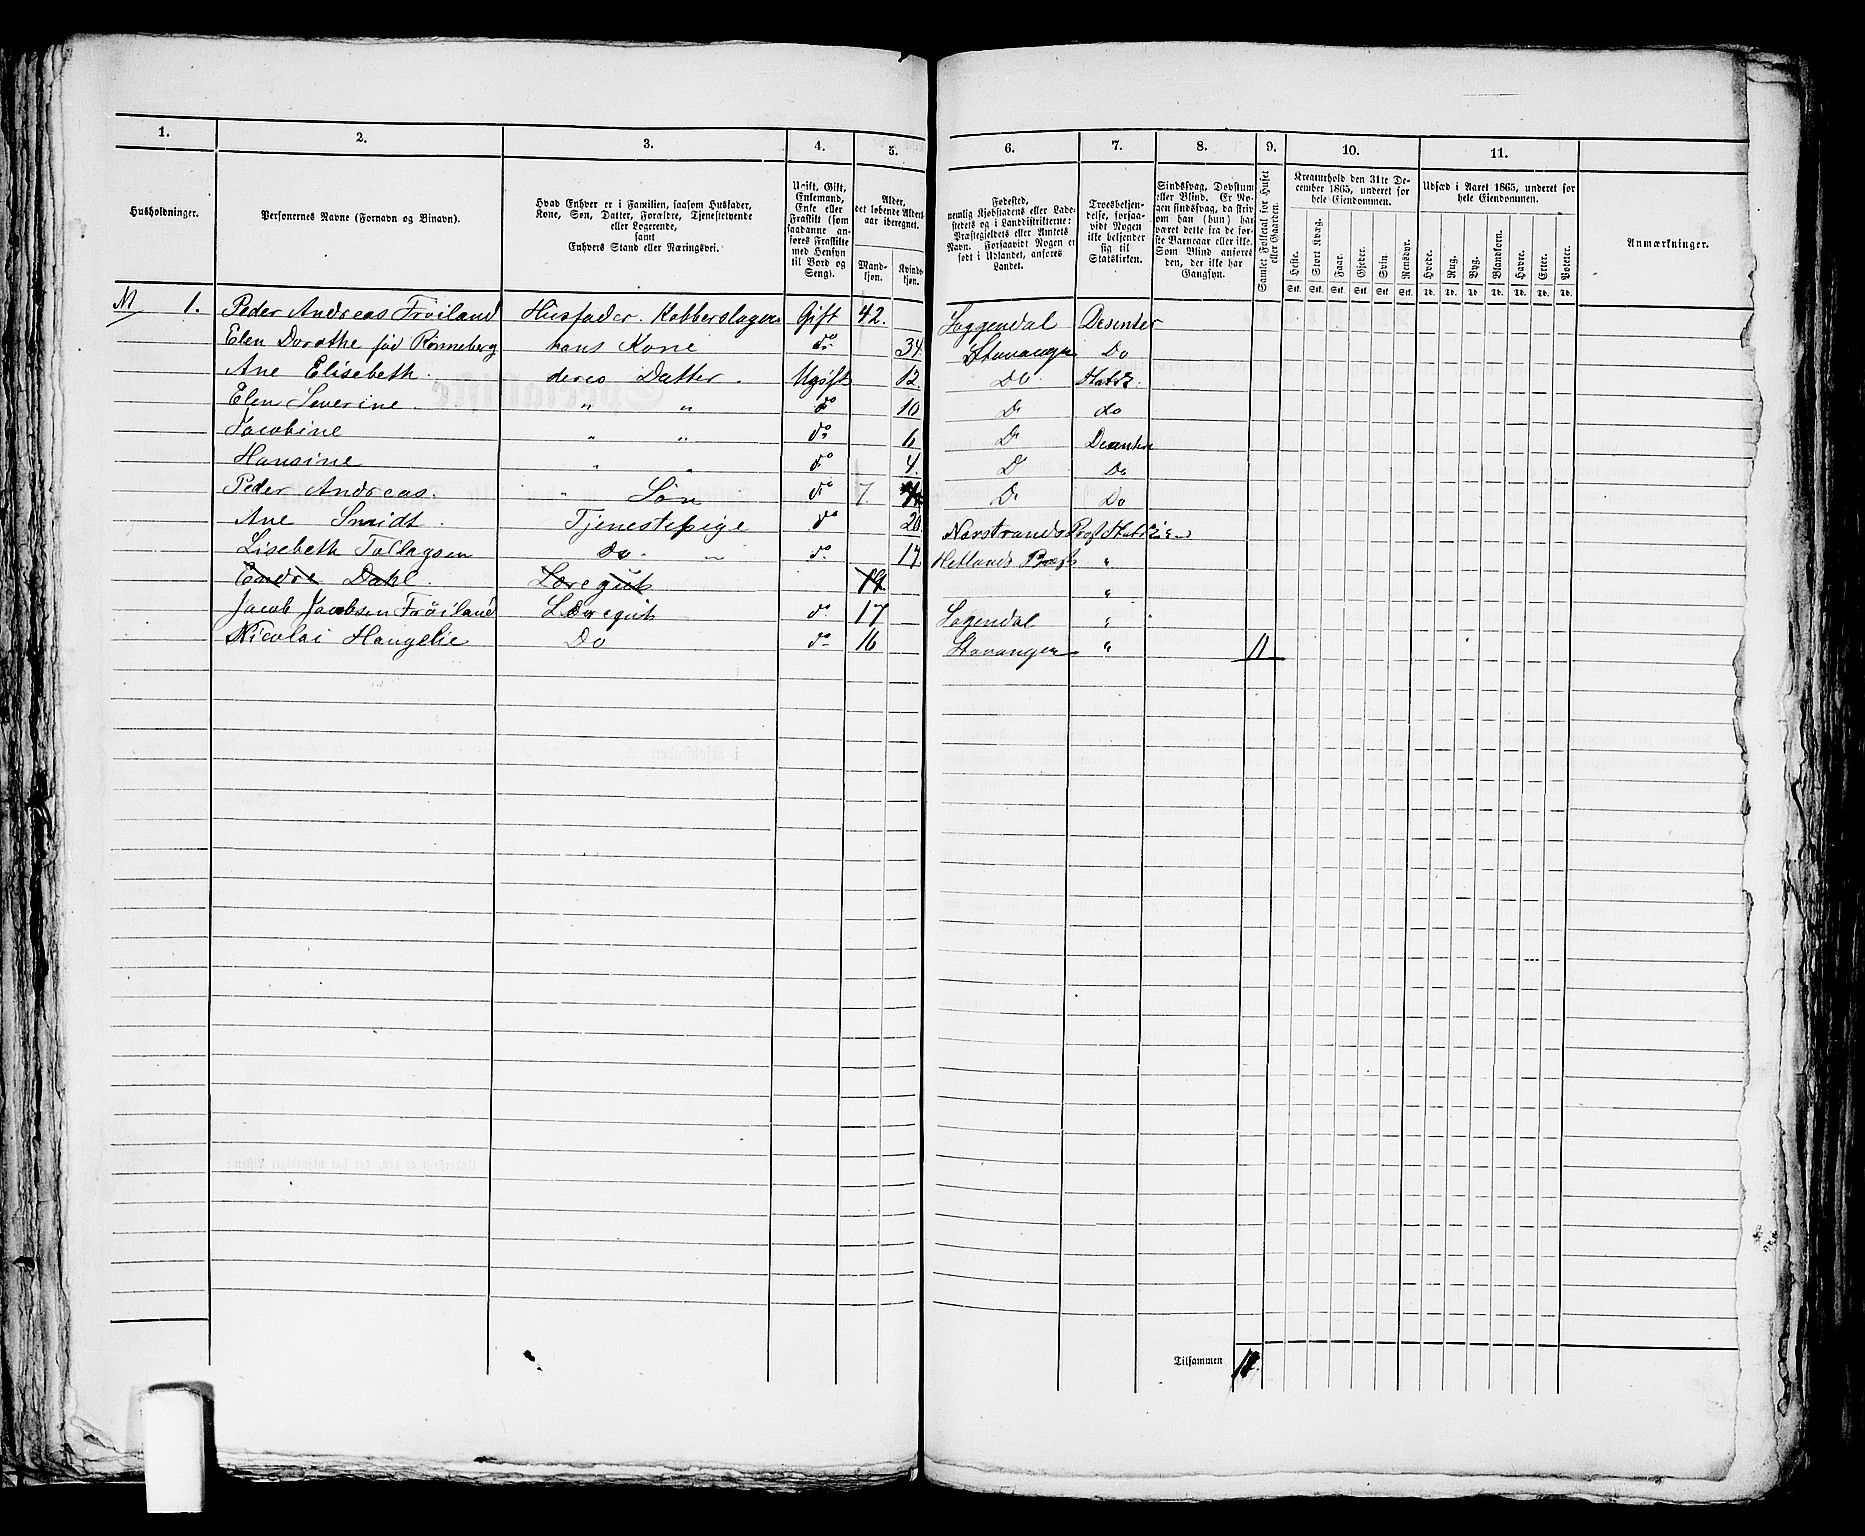 1. 2. 3. 4. 5. 6. 7. 8. 9. 10. 11.
Husholdninger.
Personernes Navne (Fornavn og Binavn).
Hvad Enhver er i Familien, saasom Husfader, Kone, Søn, Datter, Forældre, Tjenestetyende eller Logerende, samt Enhvers Stand eller Næringsvei.
Ugift, Gift, Enkemand, Enke eller Fraskilt (som saadanne anføres Fraskilte med Hensyn til Bord og Seng).
Alder, det løbende Aldersaar iberegnet.
Mandkjøn. Kvindekjøn.
Fødested, nemlig Kjøbstadens eller Ladestedets og i Landdistrikterne: Præstegjeldets eller Amtets Navn. Forsaavidt Nogen er født i Udlandet, anføres Landet.
Troesbekjendelse, forsaavidt Nogen ikke bekjender sig til Statskirken.
Sindssvag, Døvstum eller Blind. Er Nogen sindssvag, da skrives om han (hun) har været dette fra de første Barneaar eller ikke. Som Blind anføres den, der ikke har Gangsyn.
Samlet Folketal for Huset eller Gaarden.
Kreaturhold den 31te December 1865, underet for hele Eiendommen.
Heste. Stort Kvæg. Faar. Gjeder. Svin. Rensdyr.
Stk. Stk. Stk. Stk. Stk. Stk.
Udsæd i Aaret 1865, underet for hele Eiendommen.
Hvede. Rug. Byg. Blandkorn. Havre. Erter. Poteter.
Td. Td. Td. Td. Td. Td. Td.
Anmærkninger.
M 1. Peder Andreas Frøiland Husfader. Kobberslager Gift 42. Soggendal Desenter
Elen Dorothe fød Rønneberg hans Kone do 34 Stavanger Do
Ane Elisebeth. deres Datter. Ugift 12. Do. Statsk.
Elen Severine. " " do 10 Do do
Jacobine " " do 6 Do Desenter
Hansine " " do 4. D Do
Peder Andreas. " Søn do 7. Do Do
Ane Smidt. Tjenestepige do 20 Nerstrands Præst Statskirken
Lisebeth Tollagsen Do. " do. 17. Hetlands Præst "
Endre Dahl. Læregut 19. "
Jacob Jacobsen Frøiland Læregut do. 17 Sogendal "
Nicolai Haugelie Do do 16 Stavanger " 11
Tilsammen 11.